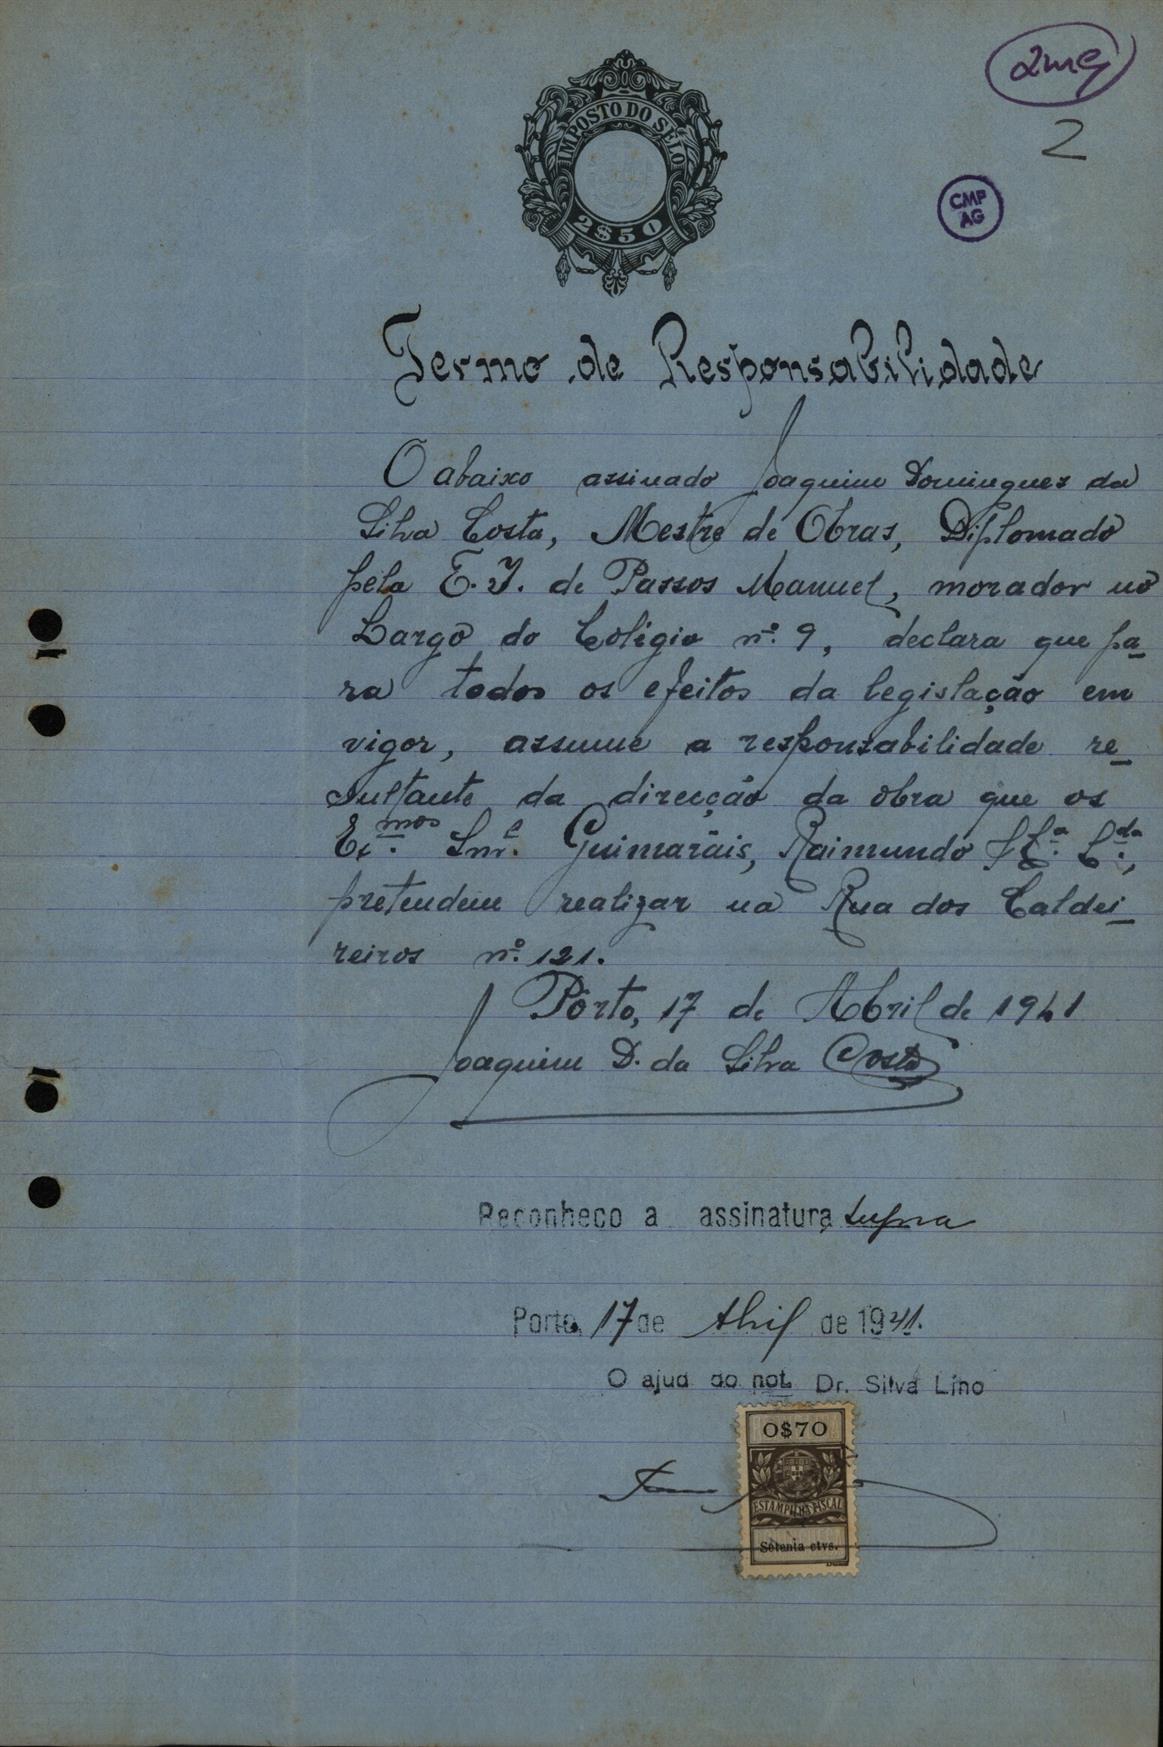 2
IMPOSTO DO SELO
2$50
CMP
AG
Termo de Responsabilidade
O abaixo assinado Joaquim Domingues da
Silva Costa, Mestre de Obras, Diplomado
pela E. I. de Passos Manuel, morador no
Largo do Colégio nº. 9, declara que pa-
ra todos os efeitos da legislação em
vigor, assume a responsabilidade re-
sultante da direcção da obra que os
Ex.mos Snr.s Guimarãis, Raimundo & C.ª L.da,
pretendem realizar na Rua dos Caldei-
reiros nº. 121.
Pôrto, 17 de Abril de 1941
Joaquim D. da Silva Costa
Reconheço a assinatura supra
Porto, 17 de Abril de 1941.
O ajud do not. Dr. Silva Lino
0$70
ESTAMPILHA FISCAL
Setenta ctvs.